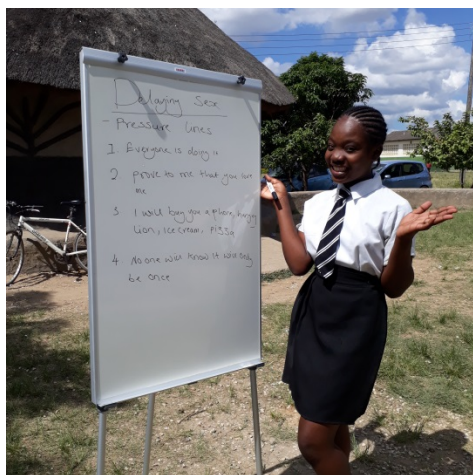 Delaying Sex
- Pressure lines
1. Everyone is doing it
2 prove to me that you love
me
3 I will buy you a phone, hungry
Lion, ice cream, Pissa
4. No one will know it will only
be once